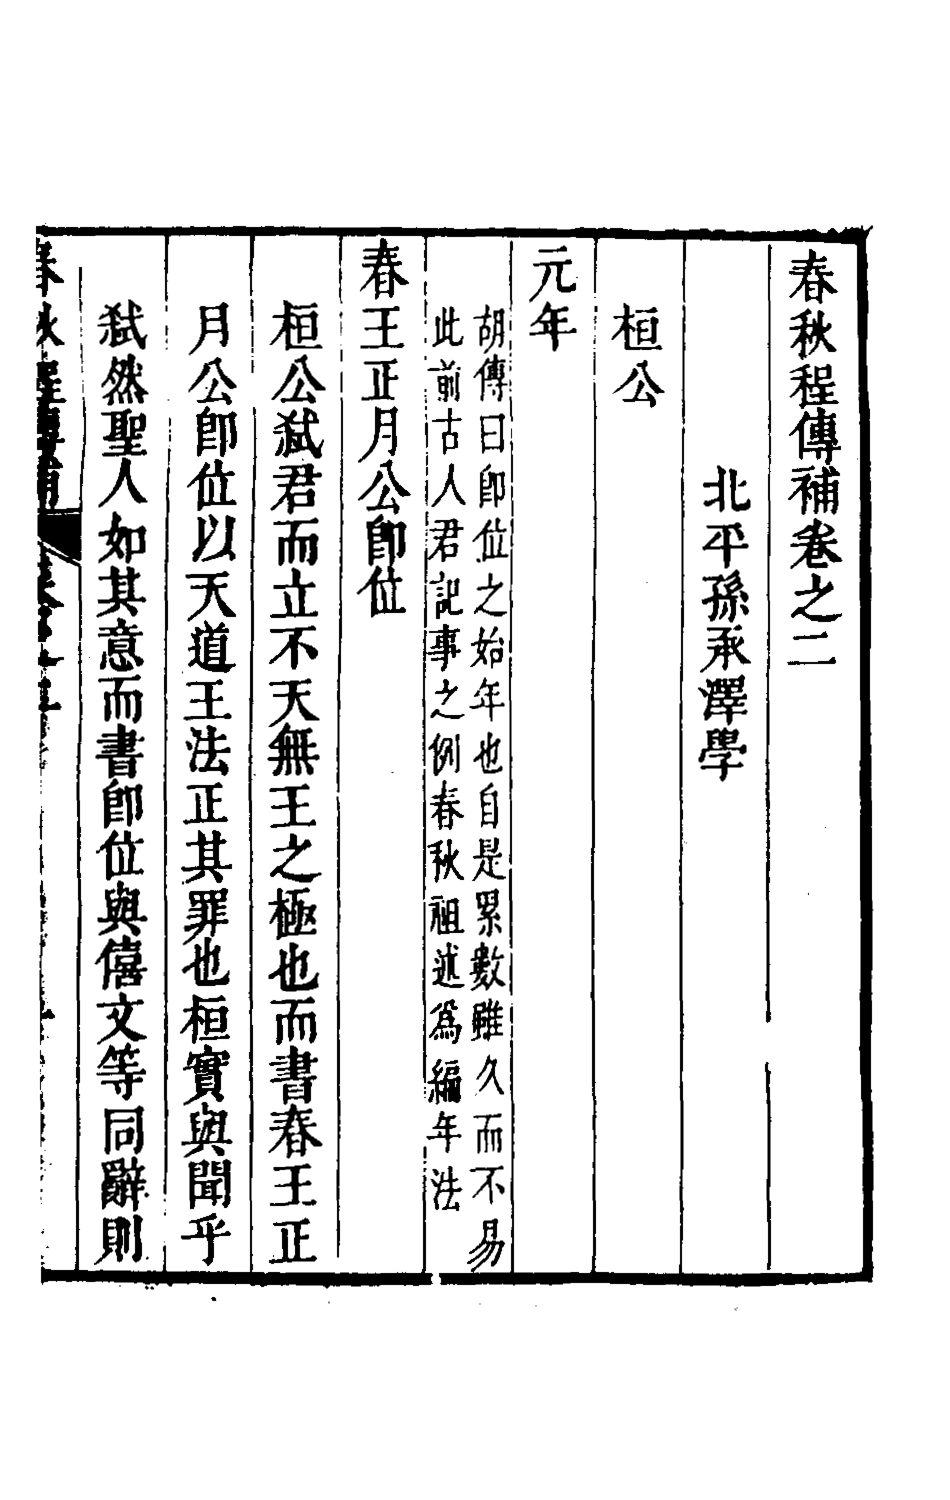 春秋程傳補卷之二
北平孫承澤學
桓公
元年
胡傳曰卽位之始年也自是累數雖久而不易
此前古人君記事之例春秋祖述爲編年法
春王正月公卽位
桓公弑君而立不天無王之極也而書春王正
月公卽位以天道王法正其罪也桓實與聞乎
弑然聖人如其意而書卽位與僖文等同辭則